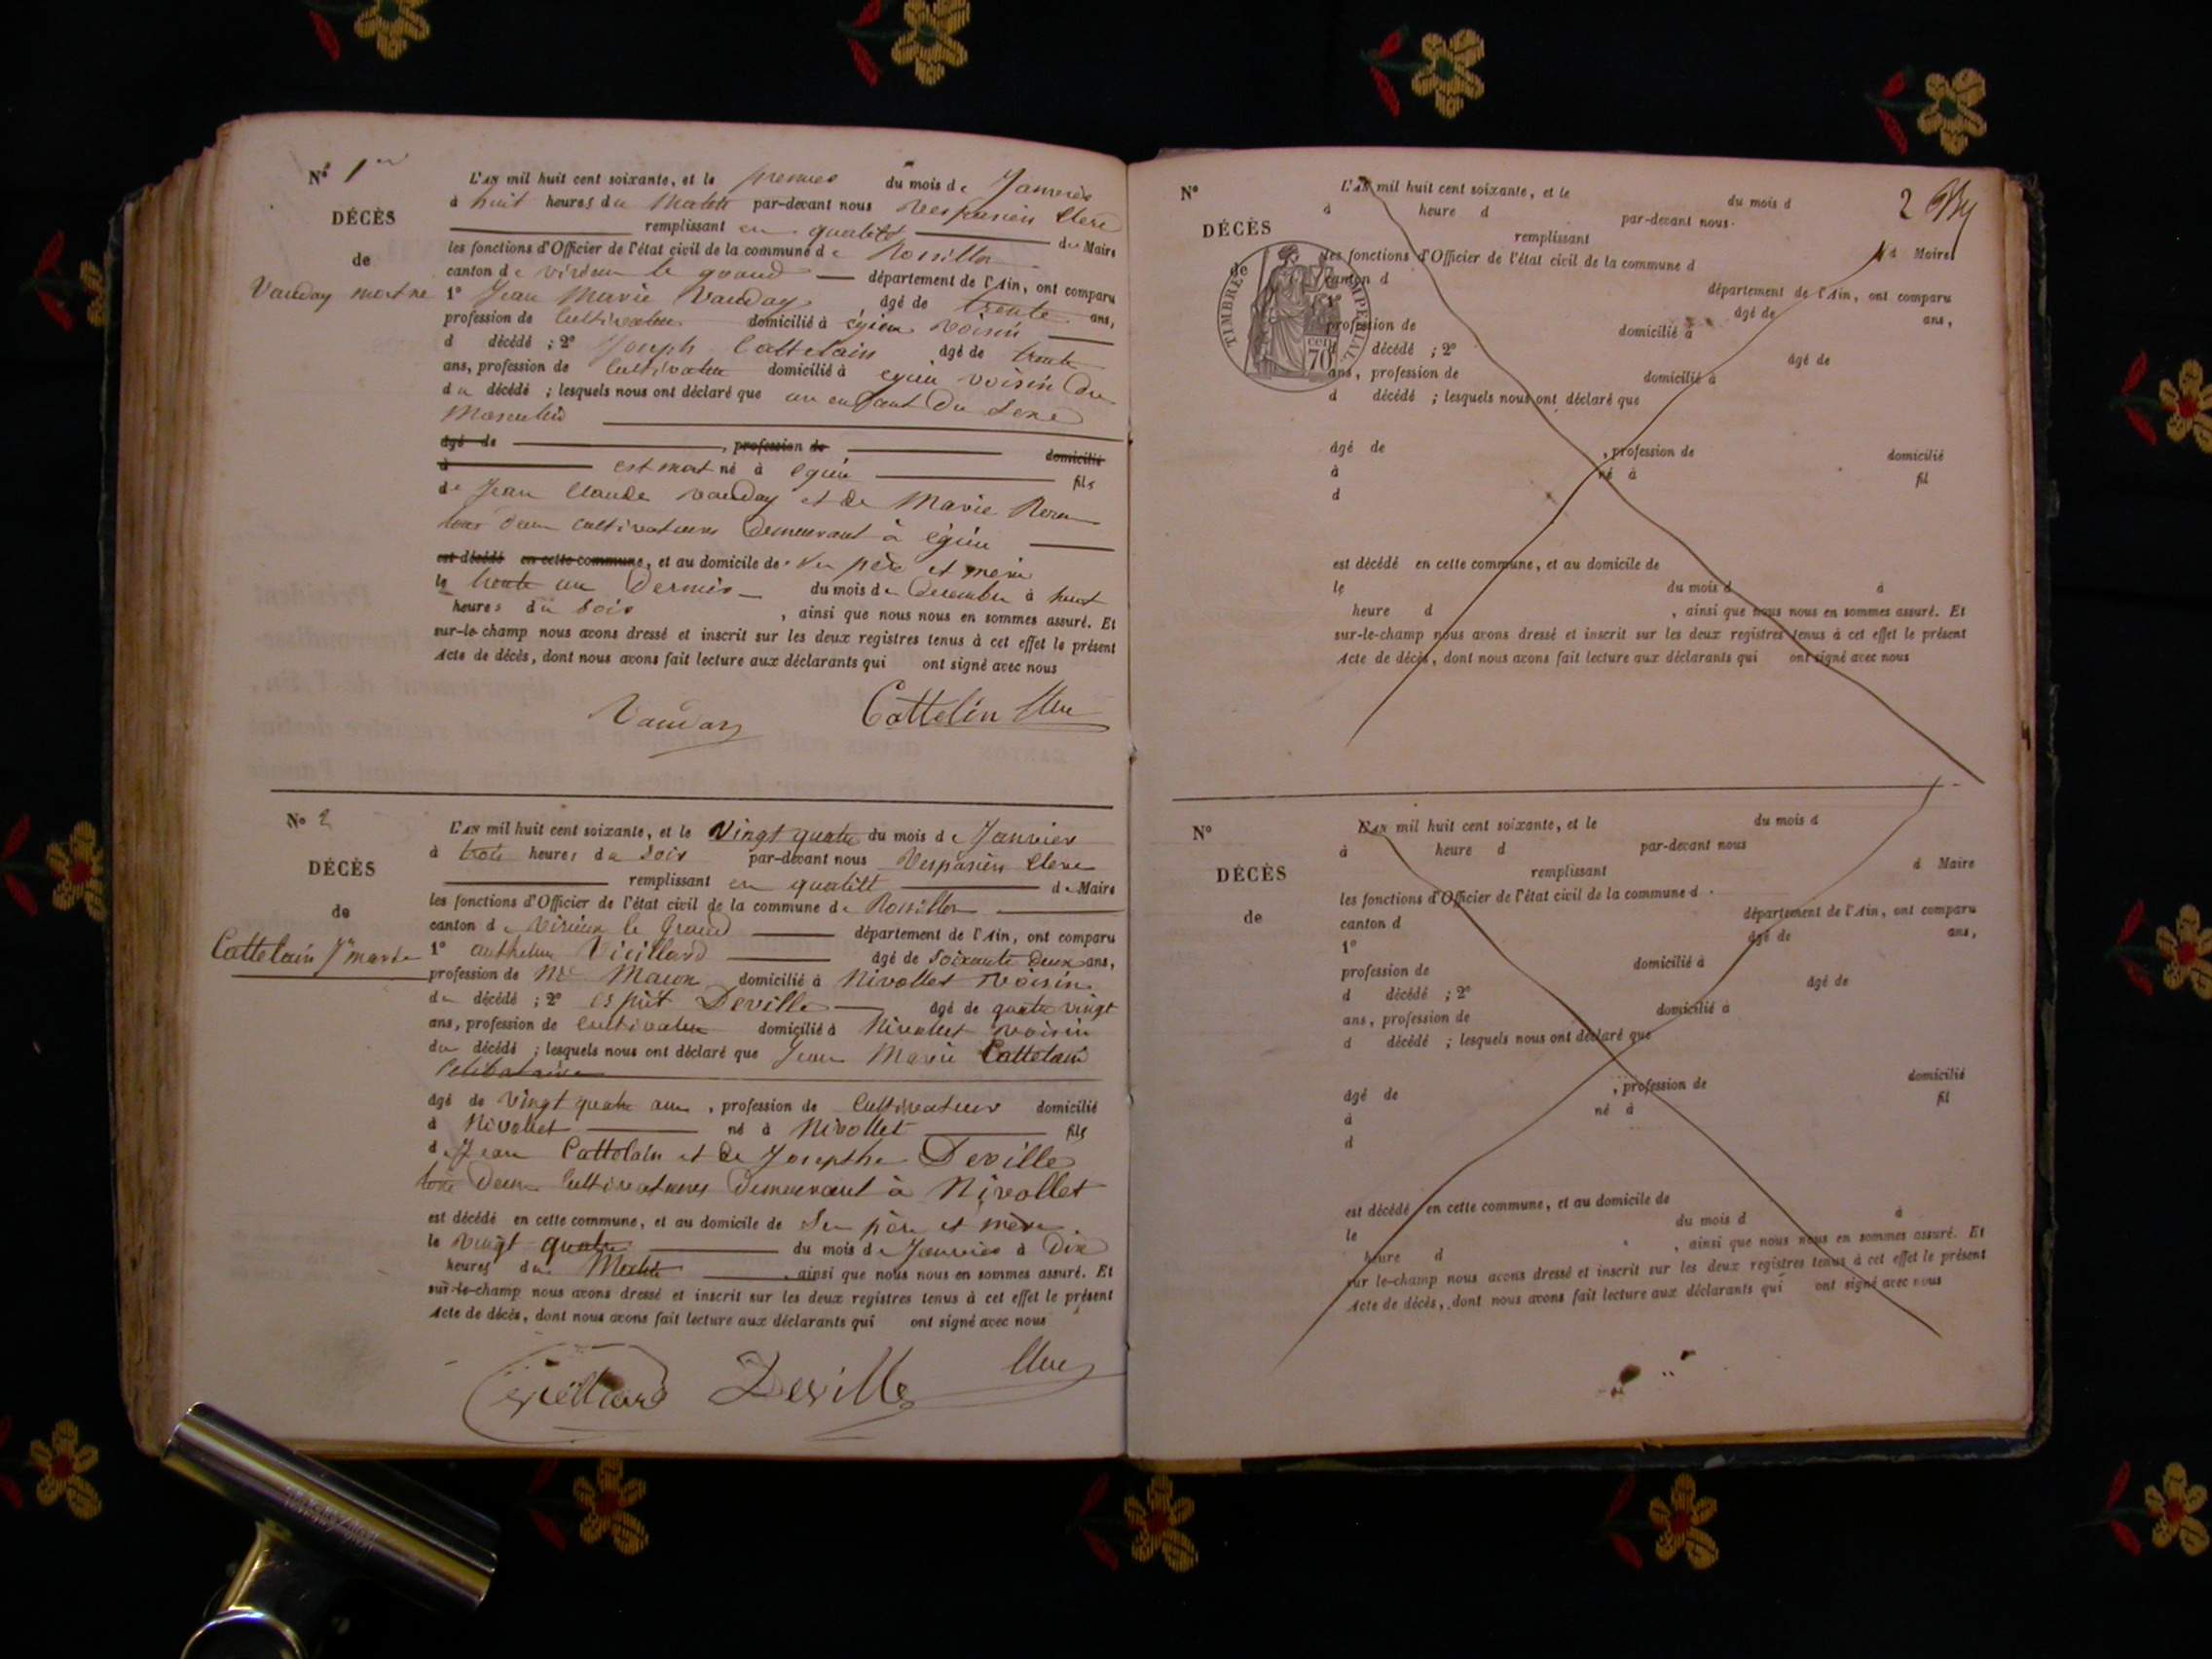 N° 1er
DÉCÈS
de
Vauday mort né
L'AN mil huit cent soixante, et le premier du mois de Janvier
à huit heures du Matin par-devant nous Vespasien Clerc
remplissant en qualité de Maire
les fonctions d'Officier de l'état civil de la commune de Rossillon
canton de virieu le grand département de l'Ain, ont comparu
1° Jean Marie Vauday âgé de trente ans,
profession de Cultivateur domicilié à égieu voisin
d décédé ; 2° Joseph Cattelain âgé de trente
ans, profession de Cultivateur domicilié à egieu voisin du
du décédé ; lesquels nous ont déclaré que un enfant du sexe
Masculin
âgé de , profession de domicilié
à est mort né à egieu fils
de Jean Claude Vauday et de Marie
tous deux cultivateurs demeurant à égieu
est décédé en cette commune, et au domicile de ses père et mère
le trente un dernier du mois de Décembre à huit
heures du soir , ainsi que nous nous en sommes assuré. Et
sur-le-champ nous avons dressé et inscrit sur les deux registres tenus à cet effet le présent
Acte de décès, dont nous avons fait lecture aux déclarants qui ont signé avec nous
Vauday Cattelin Clerc
N° 2
DÉCÈS
de
Cattelain Jn marie
L'AN mil huit cent soixante, et le Vingt quatre du mois de Janvier
à trois heures du soir par-devant nous Vespasien Clerc
remplissant en qualité de Maire
les fonctions d'Officier de l'état civil de la commune de Rossillon
canton de Virieux le Grand département de l'Ain, ont comparu
1° anthelme Vieillard âgé de soixante deux ans,
profession de Me Maçon domicilié à Nivollet voisin
du décédé ; 2° esprit Deville âgé de quatre vingt
ans, profession de cultivateur domicilié à Nivollet voisin
du décédé ; lesquels nous ont déclaré que Jean Marie Cattelain
Célibataire
âgé de vingt quatre ans , profession de Cultivateur domicilié
à Nivollet né à Nivollet fils
de Jean Cattelain et de Josephte Deville
tous deux Cultivateurs demeurant à Nivollet
est décédé en cette commune, et au domicile de Ses père et mère
le vingt quatre du mois de Janvier à Dix
heures du Matin , ainsi que nous nous en sommes assuré. Et
sur-le-champ nous avons dressé et inscrit sur les deux registres tenus à cet effet le présent
Acte de décès, dont nous avons fait lecture aux déclarants qui ont signé avec nous
vieillard Deville Clerc
2
N°
DÉCÈS
de
TIMBRE IMPERIAL
70 cen
L'AN mil huit cent soixante, et le du mois d
à heure d par-devant nous
remplissant d Maire
les fonctions d'Officier de l'état civil de la commune d
canton d département de l'Ain, ont comparu
1° âgé de ans,
profession de domicilié à
d décédé ; 2° âgé de
ans, profession de domicilié à
d décédé ; lesquels nous ont déclaré que
âgé de , profession de domicilié
à né à fil
d
est décédé en cette commune, et au domicile de
le du mois d à
heure d , ainsi que nous nous en sommes assuré. Et
sur-le-champ nous avons dressé et inscrit sur les deux registres tenus à cet effet le présent
Acte de décès, dont nous avons fait lecture aux déclarants qui ont signé avec nous
N°
DÉCÈS
de
L'AN mil huit cent soixante, et le du mois d
à heure d par-devant nous
remplissant d Maire
les fonctions d'Officier de l'état civil de la commune d
canton d département de l'Ain, ont comparu
1° âgé de ans,
profession de domicilié à
d décédé ; 2° âgé de
ans, profession de domicilié à
d décédé ; lesquels nous ont déclaré que
âgé de , profession de domicilié
à né à fil
d
est décédé en cette commune, et au domicile de
le du mois d à
heure d , ainsi que nous nous en sommes assuré. Et
sur le-champ nous avons dressé et inscrit sur les deux registres tenus à cet effet le présent
Acte de décès, dont nous avons fait lecture aux déclarants qui ont signé avec nous